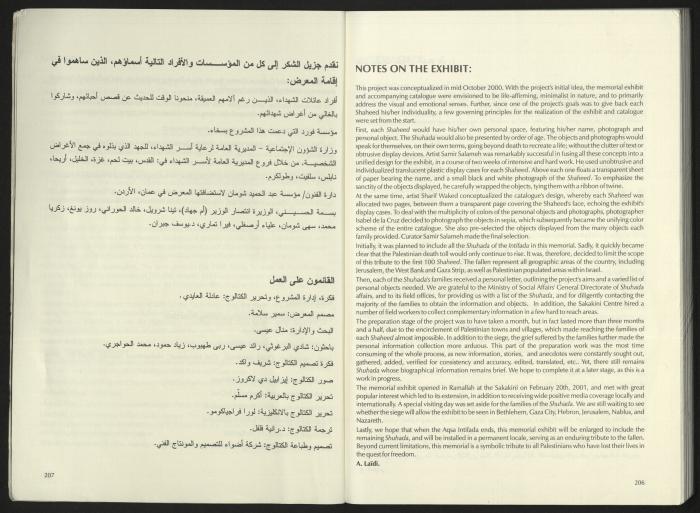 نقدم جزيل الشكر إلى كل من المؤسسات والأفراد التالية أسماؤهم، الذين ساهموا في
إقامة المعرض:
أفراد عائلات الشهداء، الذين رغم آلامهم العميقة، منحونا الوقت للحديث عن قصص أحبائهم، وشاركوا
بالغالي من أغراض شهدائهم.
مؤسسة فورد التي دعمت هذا المشروع بسخاء.
وزارة الشؤون الإجتماعية - المديرية العامة لرعاية أسر الشهداء، للجهد الذي بذلوه في جمع الأغراض
الشخصية. من خلال فروع المديرية العامة لأسر الشهداء في: القدس، بيت لحم، غزة، الخليل، أريحا،
نابلس، سلفيت، وطولكرم.
دارة الفنون/ مؤسسة عبد الحميد شومان لاستضافتها المعرض في عمان، الأردن.
بسمة الحسيني، الوزيرة انتصار الوزير (أم جهاد)، تينا شرويل، خالد الحوراني، روز يونغ، زكريا
محمد، سهى شومان، علياء أرصغلي، فيرا تماري، د.يوسف جبران.
القائمون على العمل
فكرة، إدارة المشروع، وتحرير الكتالوج: عادلة العايدي.
مصمم المعرض: سمير سلامة.
البحث والإدارة: منال عيسى.
باحثون: شادي البرغوثي، رائد عيسى، ربى طهبوب، زياد حمود، محمد الحواجري.
فكرة تصميم الكتالوج: شريف واكد.
صور الكتالوج: إيزابيل دي لاكروز.
تحرير الكتالوج بالعربية: أكرم مسلّم.
تحرير الكتالوج بالانكليزية: لورا فراجياكومو.
ترجمة الكتالوج: د.رانية فلفل.
تصميم وطباعة الكتالوج: شركة أضواء للتصميم والمونتاج الفني.
207
NOTES ON THE EXHIBIT:
This project was conceptualized in mid October 2000. With the project's initial idea, the memorial exhibit
and accompanying catalogue were envisioned to be life-affirming, minimalist in nature, and to primarily
address the visual and emotional senses. Further, since one of the project's goals was to give back each
Shaheed his individuality, a few governing principles for the realization of the exhibit and catalogue
were set from the start.
First, each Shaheed would have his own personal space, featuring his name, photograph and
personal object. The Shuhada would also be presented by order of age. The objects and photographs would
speak for themselves, on their own terms, going beyond death to recreate a life; without the clutter of text or
obtrusive display devices. Artist Samir Salameh was remarkably successful in fusing all these concepts into a
unified design for the exhibit, in a course of two weeks of intensive and hard work. He used unobtrusive and
individualized translucent plastic display cases for each Shaheed. Above each one floats a transparent sheet
of paper bearing the name, and a small black and white photograph of the Shaheed. To emphasize the
sanctity of the objects displayed, he carefully wrapped the objects, tying them with a ribbon of twine.
At the same time, artist Sharif Waked conceptualized the catalogue's design, whereby each Shaheed was
allocated two pages, between them a transparent page covering the Shaheed's face, echoing the exhibit's
display cases. To deal with the multiplicity of colors of the personal objects and photographs, photographer
Isabel de la Cruz decided to photograph the objects in sepia, which subsequently became the unifying color
scheme of the entire catalogue. She also pre-selected the objects displayed from the many objects each
family provided. Curator Samir Salameh made the final selection.
Initially, it was planned to include all the Shuhada of the Intifada in this memorial. Sadly, it quickly became
clear that the Palestinian death toll would only continue to rise. It was, therefore, decided to limit the scope
of this tribute to the first 100 Shaheed. The fallen represent all geographic areas of the country, including
Jerusalem, the West Bank and Gaza Strip, as well as Palestinian populated areas within Israel.
Then, each of the Shuhada's families received a personal letter, outlining the project's aims and a varied list of
personal objects needed. We are grateful to the Ministry of Social Affairs' General Directorate of Shuhada
affairs, and to its field offices, for providing us with a list of the Shuhada, and for diligently contacting the
majority of the families to obtain the information and objects. In addition, the Sakakini Centre hired a
number of field workers to collect complementary information in a few hard to reach areas.
The preparation stage of the project was to have taken a month, but in fact lasted more than three months
and a half, due to the encirclement of Palestinian towns and villages, which made reaching the families of
each Shaheed almost impossible. In addition to the siege, the grief suffered by the families further made the
personal information collection more arduous. This part of the preparation work was the most time
consuming of the whole process, as new information, stories, and anecdotes were constantly sought out,
gathered, added, verified for consistency and accuracy, edited, translated, etc... Yet, there still remains
Shuhada whose biographical information remains brief. We hope to complete it at a later stage, as this is a
work in progress.
The memorial exhibit opened in Ramallah at the Sakakini on February 20th, 2001, and met with great
popular interest which led to its extension, in addition to receiving wide positive media coverage locally and
internationally. A special visiting day was set aside for the families of the Shuhada. We are still waiting to see
whether the siege will allow the exhibit to be seen in Bethlehem, Gaza City, Hebron, Jerusalem, Nablus, and
Nazareth.
Lastly, we hope that when the Aqsa Intifada ends, this memorial exhibit will be enlarged to include the
remaining Shuhada, and will be installed in a permanent locale, serving as an enduring tribute to the fallen.
Beyond current limitations, this memorial is a symbolic tribute to all Palestinians who have lost their lives in
the quest for freedom.
A. Laïdi.
206